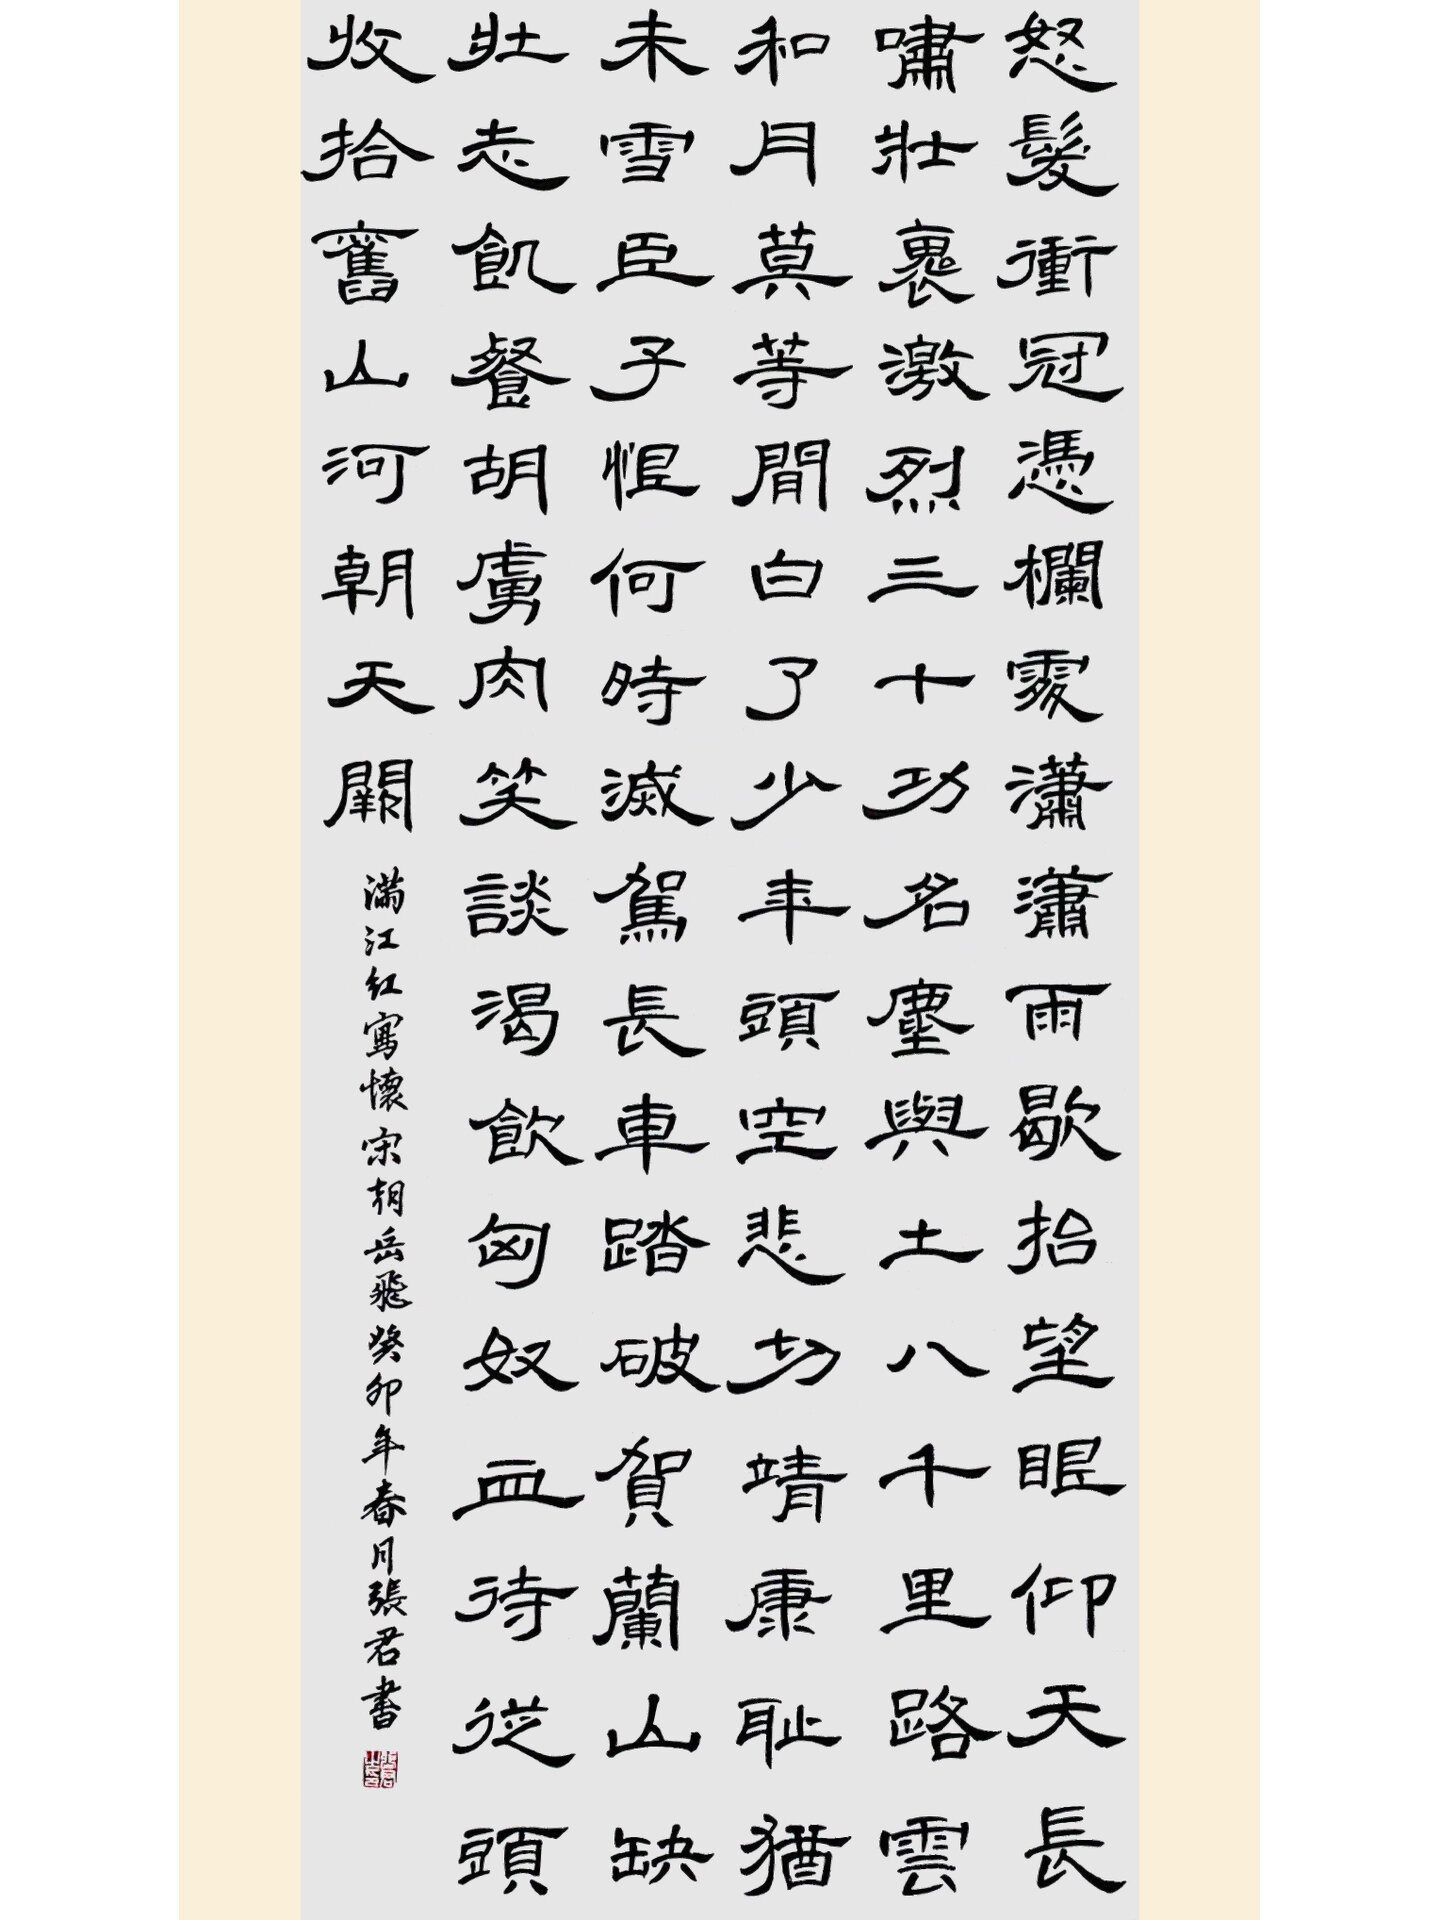 怒髮衝冠憑欄處瀟瀟雨歇抬望眼仰天長
嘯壯裏激烈三十功名塵與土八千里路雲
和月莫等閒白了少年頭空悲切靖康耻猶
未雪臣子恨何時滅駕長車踏破賀蘭山缺
壯志飢餐胡虜肉笑談渴飲匈奴血待從頭
收拾舊山河朝天闕
滿江红寫懷宋朝岳飛癸卯年春月張君書